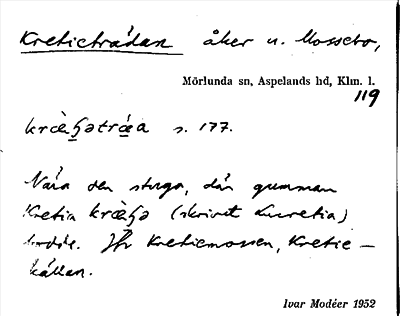 Kretieträdan åker u. Mossebo,
Mörlunda sn, Aspelands hd, Klm. l.
119
s. 177.
Nära den stuga, där gumman
Kretia (skrivet Lucretia)
bodde. Jfr Kretiemossen, Kretie-
källan.
Ivar Modéer 1952